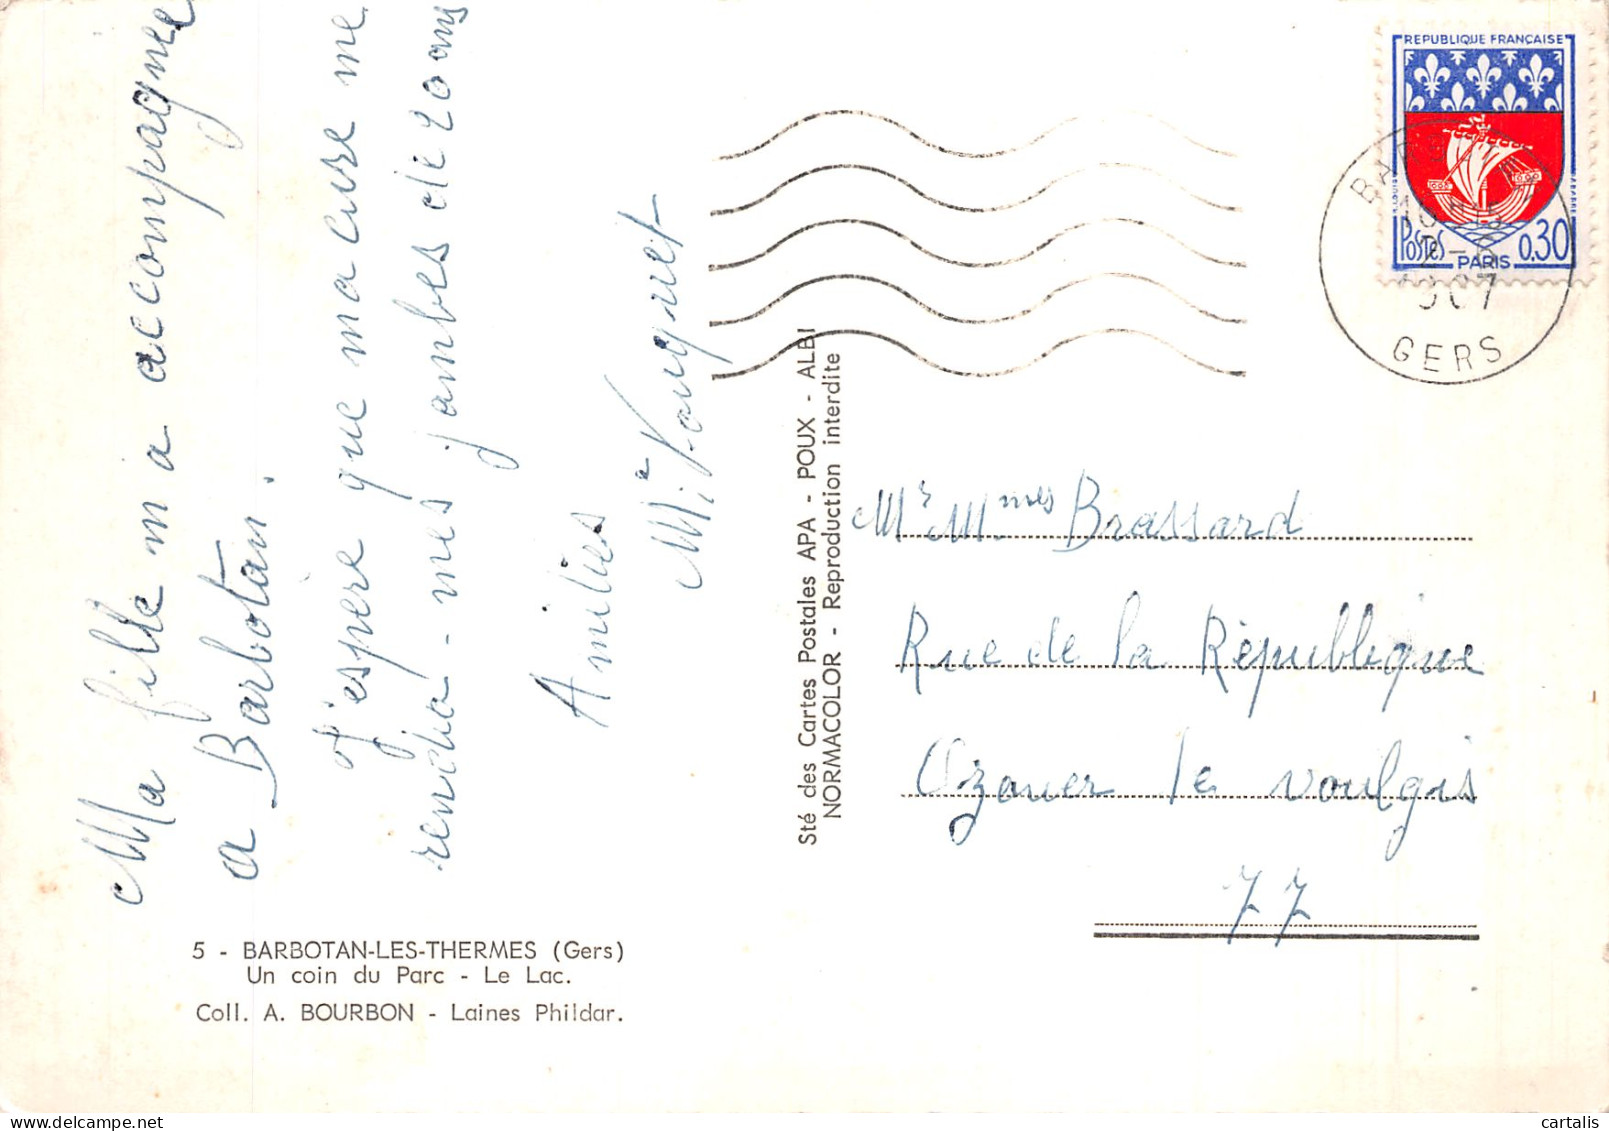 Ma fille m a accompagné
a Barbotan.
J'espère que ma cure me
rendra - mes jambes de 20 ans
Amitiés
REPUBLIQUE FRANÇAISE
Postes
0.30
PARIS
1967
GERS
Mr Mmes Brassard
Rue de la République
Ozouer le voulgis
77
Sté des Cartes Postales APA - POUX - ALBI
NORMACOLOR - Reproduction interdite
5 - BARBOTAN-LES-THERMES (Gers)
Un coin du Parc - Le Lac.
Coll. A. BOURBON - Laines Phildar.
cartalis